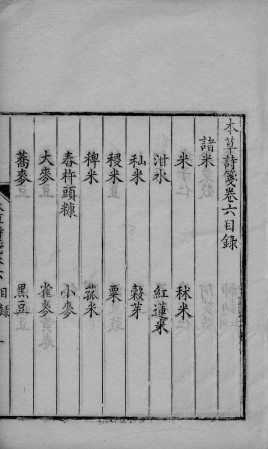 本草詩箋卷六目録
諸米
米　秫米
泔水　紅蓮米
秈米　穀芽
稷米　粟
稗米　菰米
舂杵頭糠　小麥
大麥　雀麥
蕎麥　黑豆